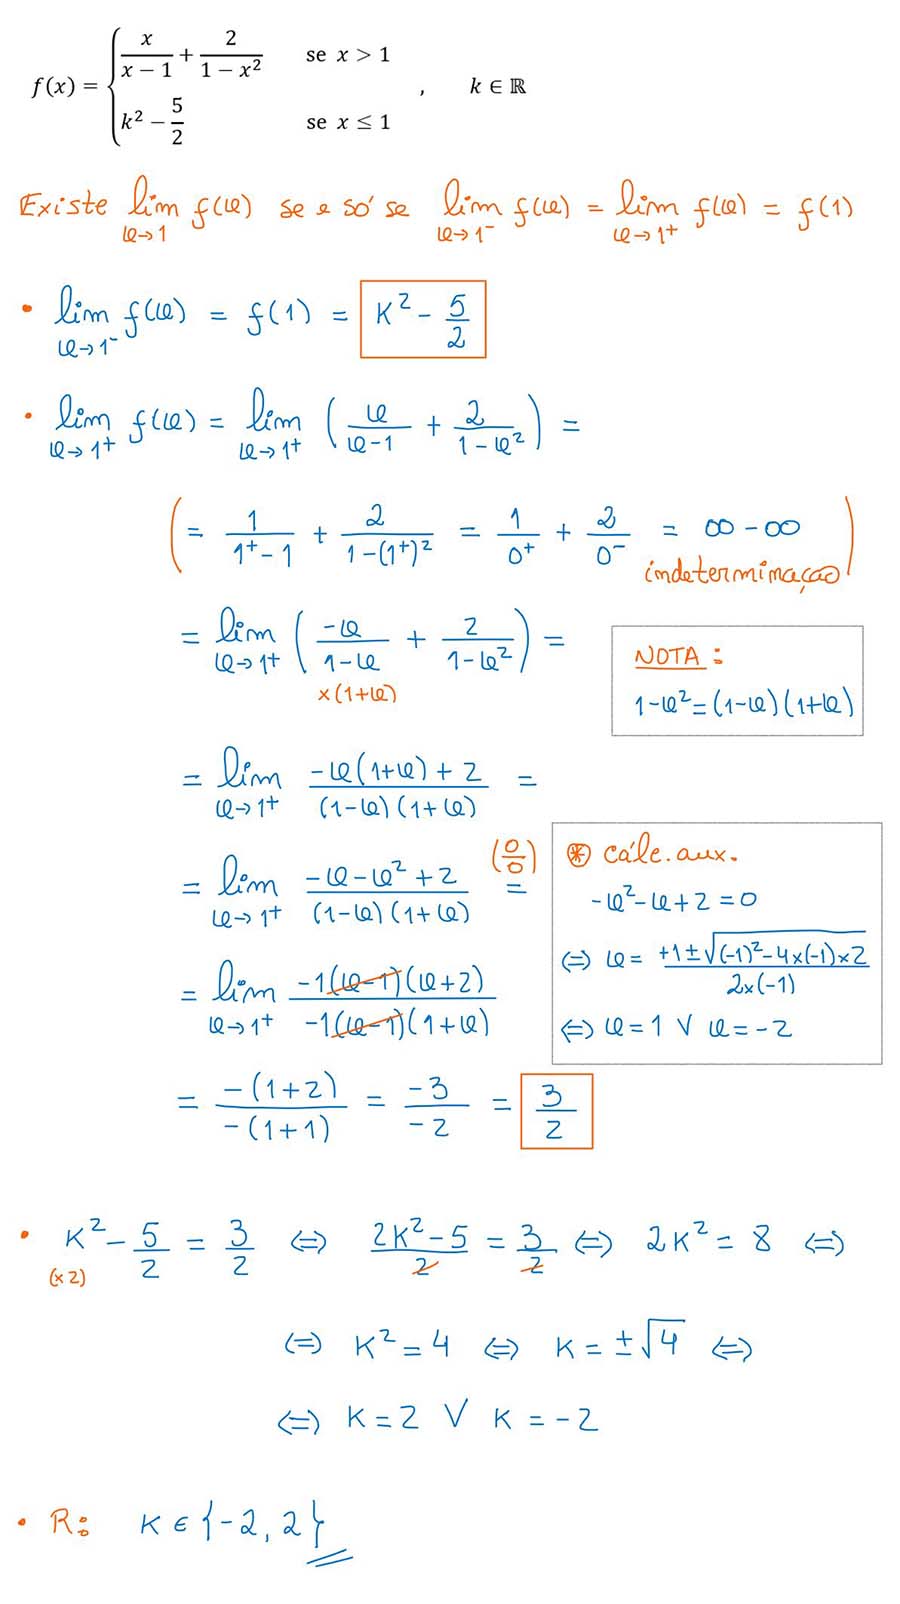 f(x) = { x/(x − 1) + 2/(1 − x²) se x > 1
k² − 5/2 se x ≤ 1 , k ∈ ℝ
Existe lim x→1 f(x) se e só se lim x→1⁻ f(x) = lim x→1⁺ f(x) = f(1)
• lim x→1⁻ f(x) = f(1) = K² − 5/2
• lim x→1⁺ f(x) = lim x→1⁺ ( x/(x−1) + 2/(1−x²) ) =
( = 1/(1⁺−1) + 2/(1−(1⁺)²) = 1/0⁺ + 2/0⁻ = ∞ − ∞ )
indeterminação
= lim x→1⁺ ( −x/(1−x) + 2/(1−x²) ) =
×(1+x)
NOTA:
1−x² = (1−x)(1+x)
= lim x→1⁺ (−x(1+x)+2)/((1−x)(1+x)) =
= lim x→1⁺ (−x−x²+2)/((1−x)(1+x)) (0/0) =
⊛ cálc. aux.
−x²−x+2=0
⇔ x = (+1±√((−1)²−4×(−1)×2))/(2×(−1))
⇔ x=1 ∨ x=−2
= lim x→1⁺ (−1(x−1)(x+2))/(−1(x−1)(1+x))
= −(1+2)/−(1+1) = −3/−2 = 3/2
• K² − 5/2 = 3/2 ⇔ (2K²−5)/2 = 3/2 ⇔ 2K² = 8 ⇔
(×2)
⇔ K² = 4 ⇔ K = ±√4 ⇔
⇔ K = 2 ∨ K = −2
• R: K ∈ {−2, 2}